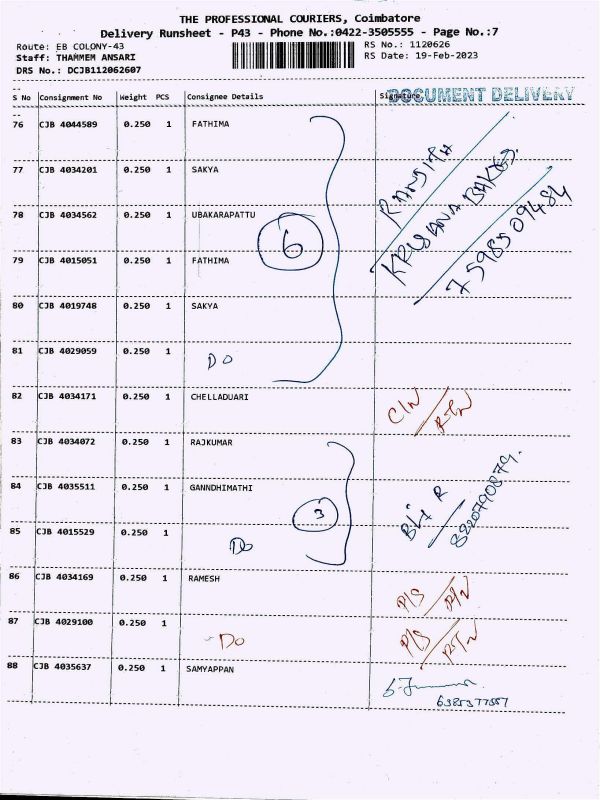 THE PROFESSIONAL COURIERS, Coimbatore
Delivery Runsheet - P43 - Phone No.:0422-3505555 - Page No.:7
Route: EB COLONY-43 RS No.: 1120626
Staff: THAMMEM ANSARI RS Date: 19-Feb-2023
DRS No.: DCJB112062607
S No Consignment No Weight PCS Consignee Details Signature DOCUMENT DELIVERY
76 CJB 4044589 0.250 1 FATHIMA
77 CJB 4034201 0.250 1 SAKYA
RANJITH
78 CJB 4034562 0.250 1 UBAKARAPATTU
KRISHANA BAKES
6
7598509484
79 CJB 4015051 0.250 1 FATHIMA
80 CJB 4019748 0.250 1 SAKYA
81 CJB 4029059 0.250 1 DO
82 CJB 4034171 0.250 1 CHELLADUARI C/N RTN
83 CJB 4034072 0.250 1 RAJKUMAR
84 CJB 4035511 0.250 1 GANNDHIMATHI
3
8220790879
85 CJB 4015529 0.250 1 DO
86 CJB 4034169 0.250 1 RAMESH P/S RTN
87 CJB 4029100 0.250 1 DO P/S RTN
88 CJB 4035637 0.250 1 SAMYAPPAN